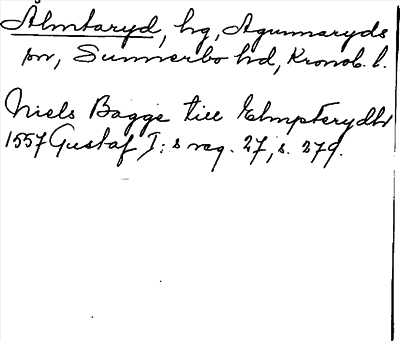 Älmtaryd, hg, Agunnaryds
sn, Sunnerbo hd, Kronob. l.
Niels Bagge till Elmpterydh
1557 Gustaf I:s reg. 27, s. 279.